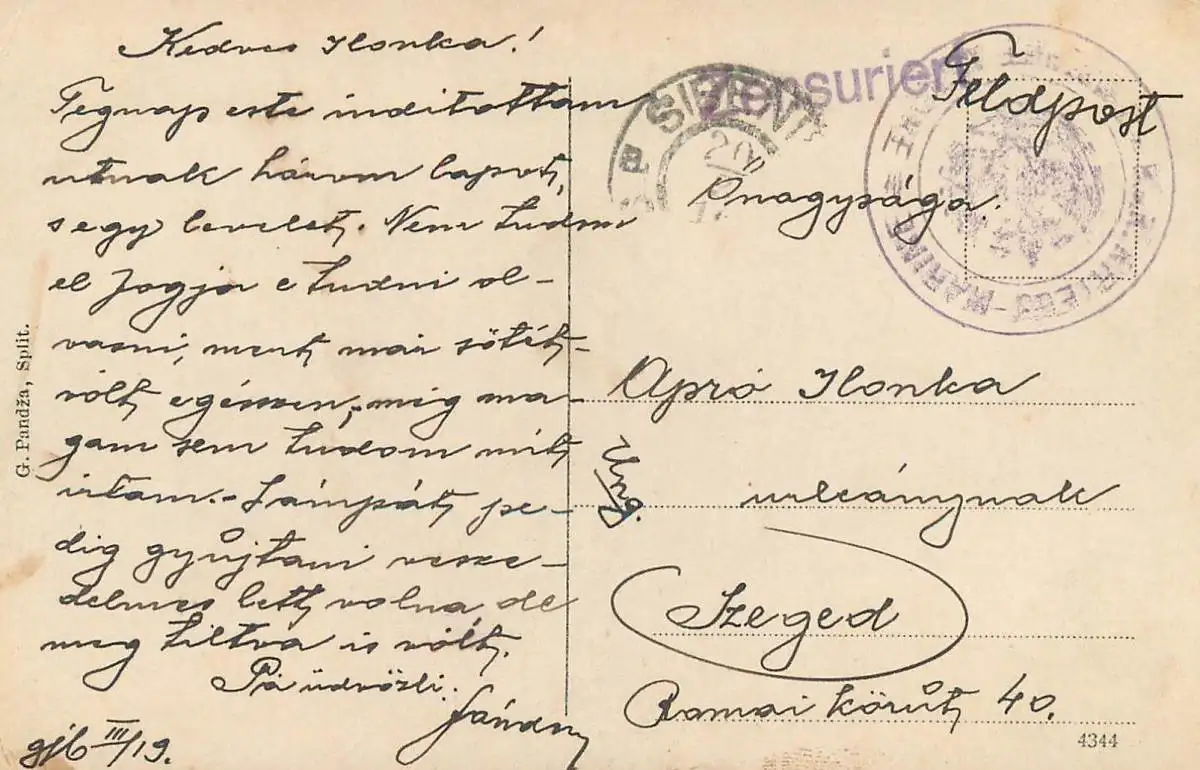 Kedves Ilonka!
Tegnap este inditottam
utnak három lapot,
s egy levelet. Nem tudom
el fogja e tudni ol-
vasni, mert már sötét
vólt egészen, míg ma-
gam sem tudom mit
irtam. - Lámpát pe-
dig gyűjtani vesze-
delmes lett volna, de
meg tiltva is vólt.
Pá üdvözli:
Sándor
III/19.
G. Pandža, Split.
Zensuriert
Feldpost
SIBENI
20
KRIEGS-MARINE
Őnagysága.
Apró Ilonka
Ung.
urleánynak
Szeged
Római körút 40.
4344